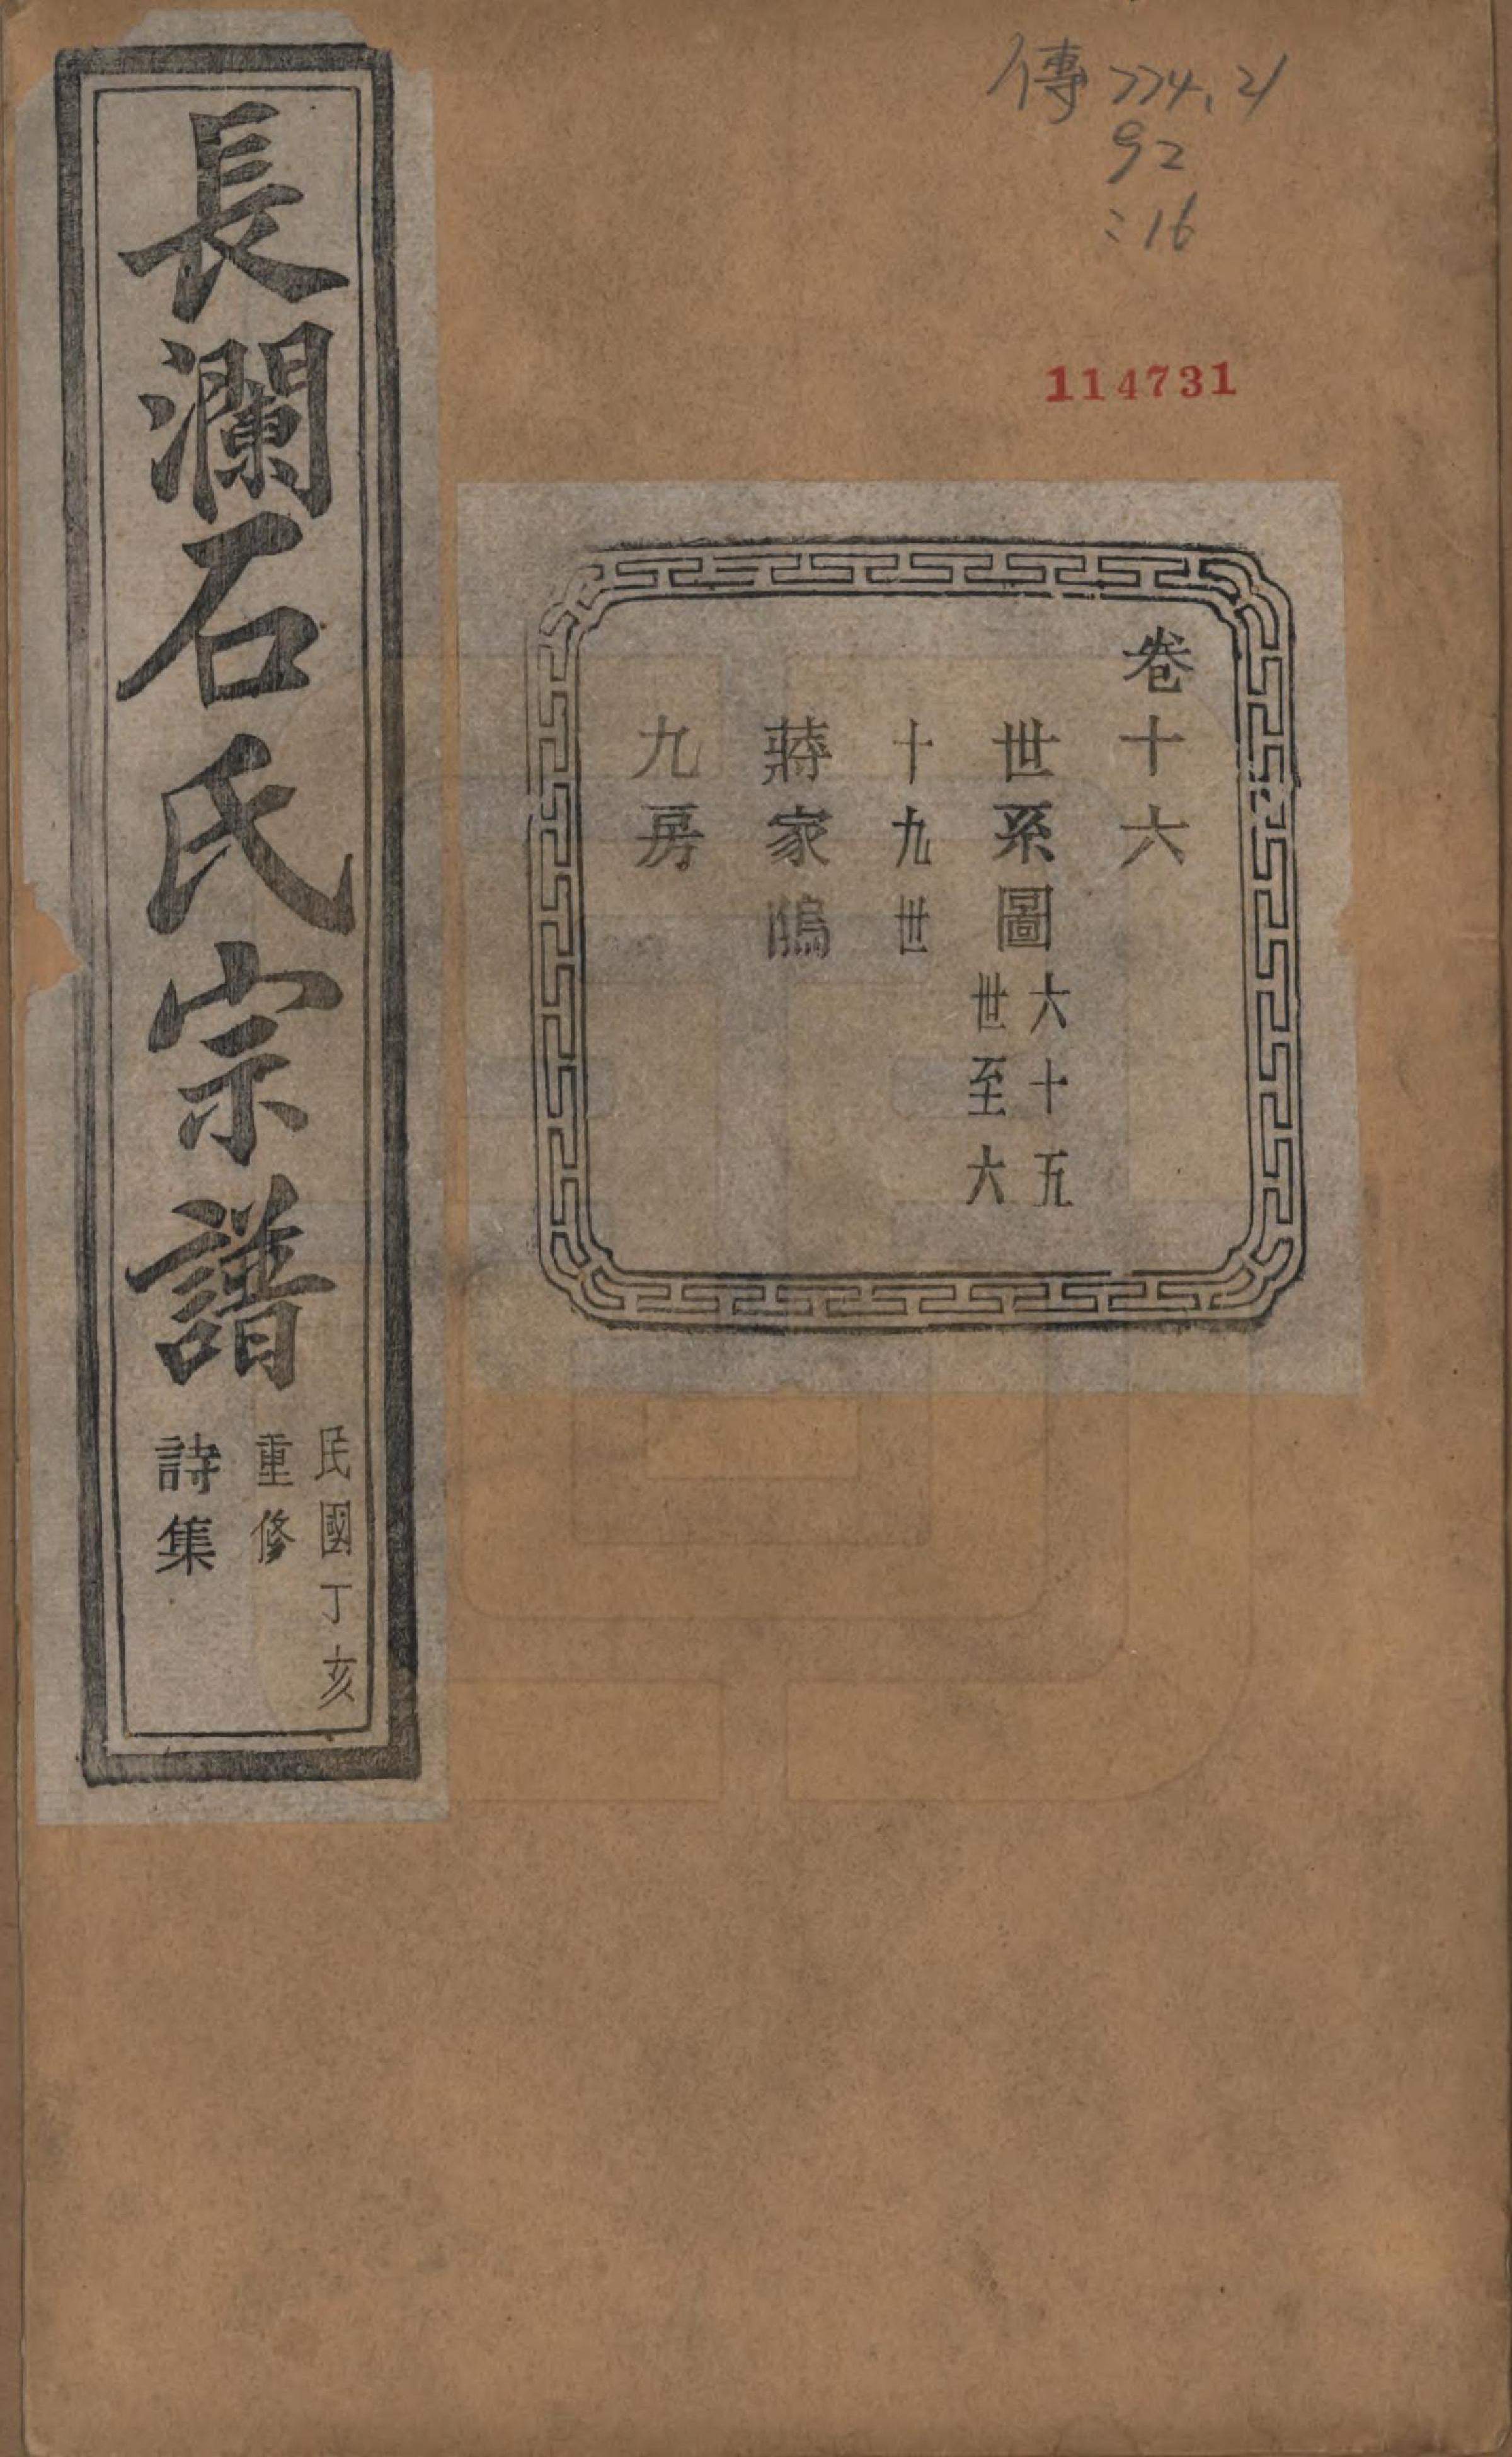 傳 774.21
92
:16
114731
卷十六
世系圖 六十五
世至六
十九世
蔣家鴭
九房
長瀾石氏宗譜
民國丁亥
重修
詩集